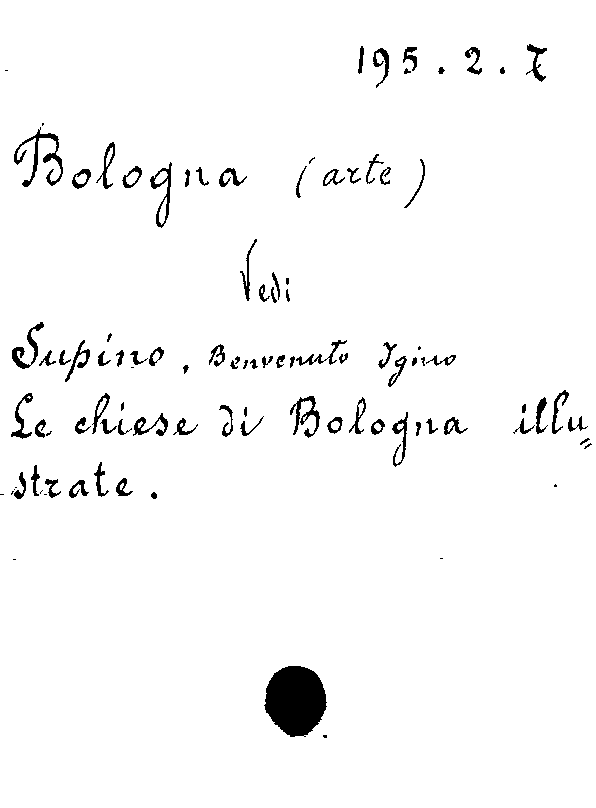 195.2.7
Bologna (arte)
Vedi
Supino, Benvenuto Igino
Le chiese di Bologna illu=
strate.